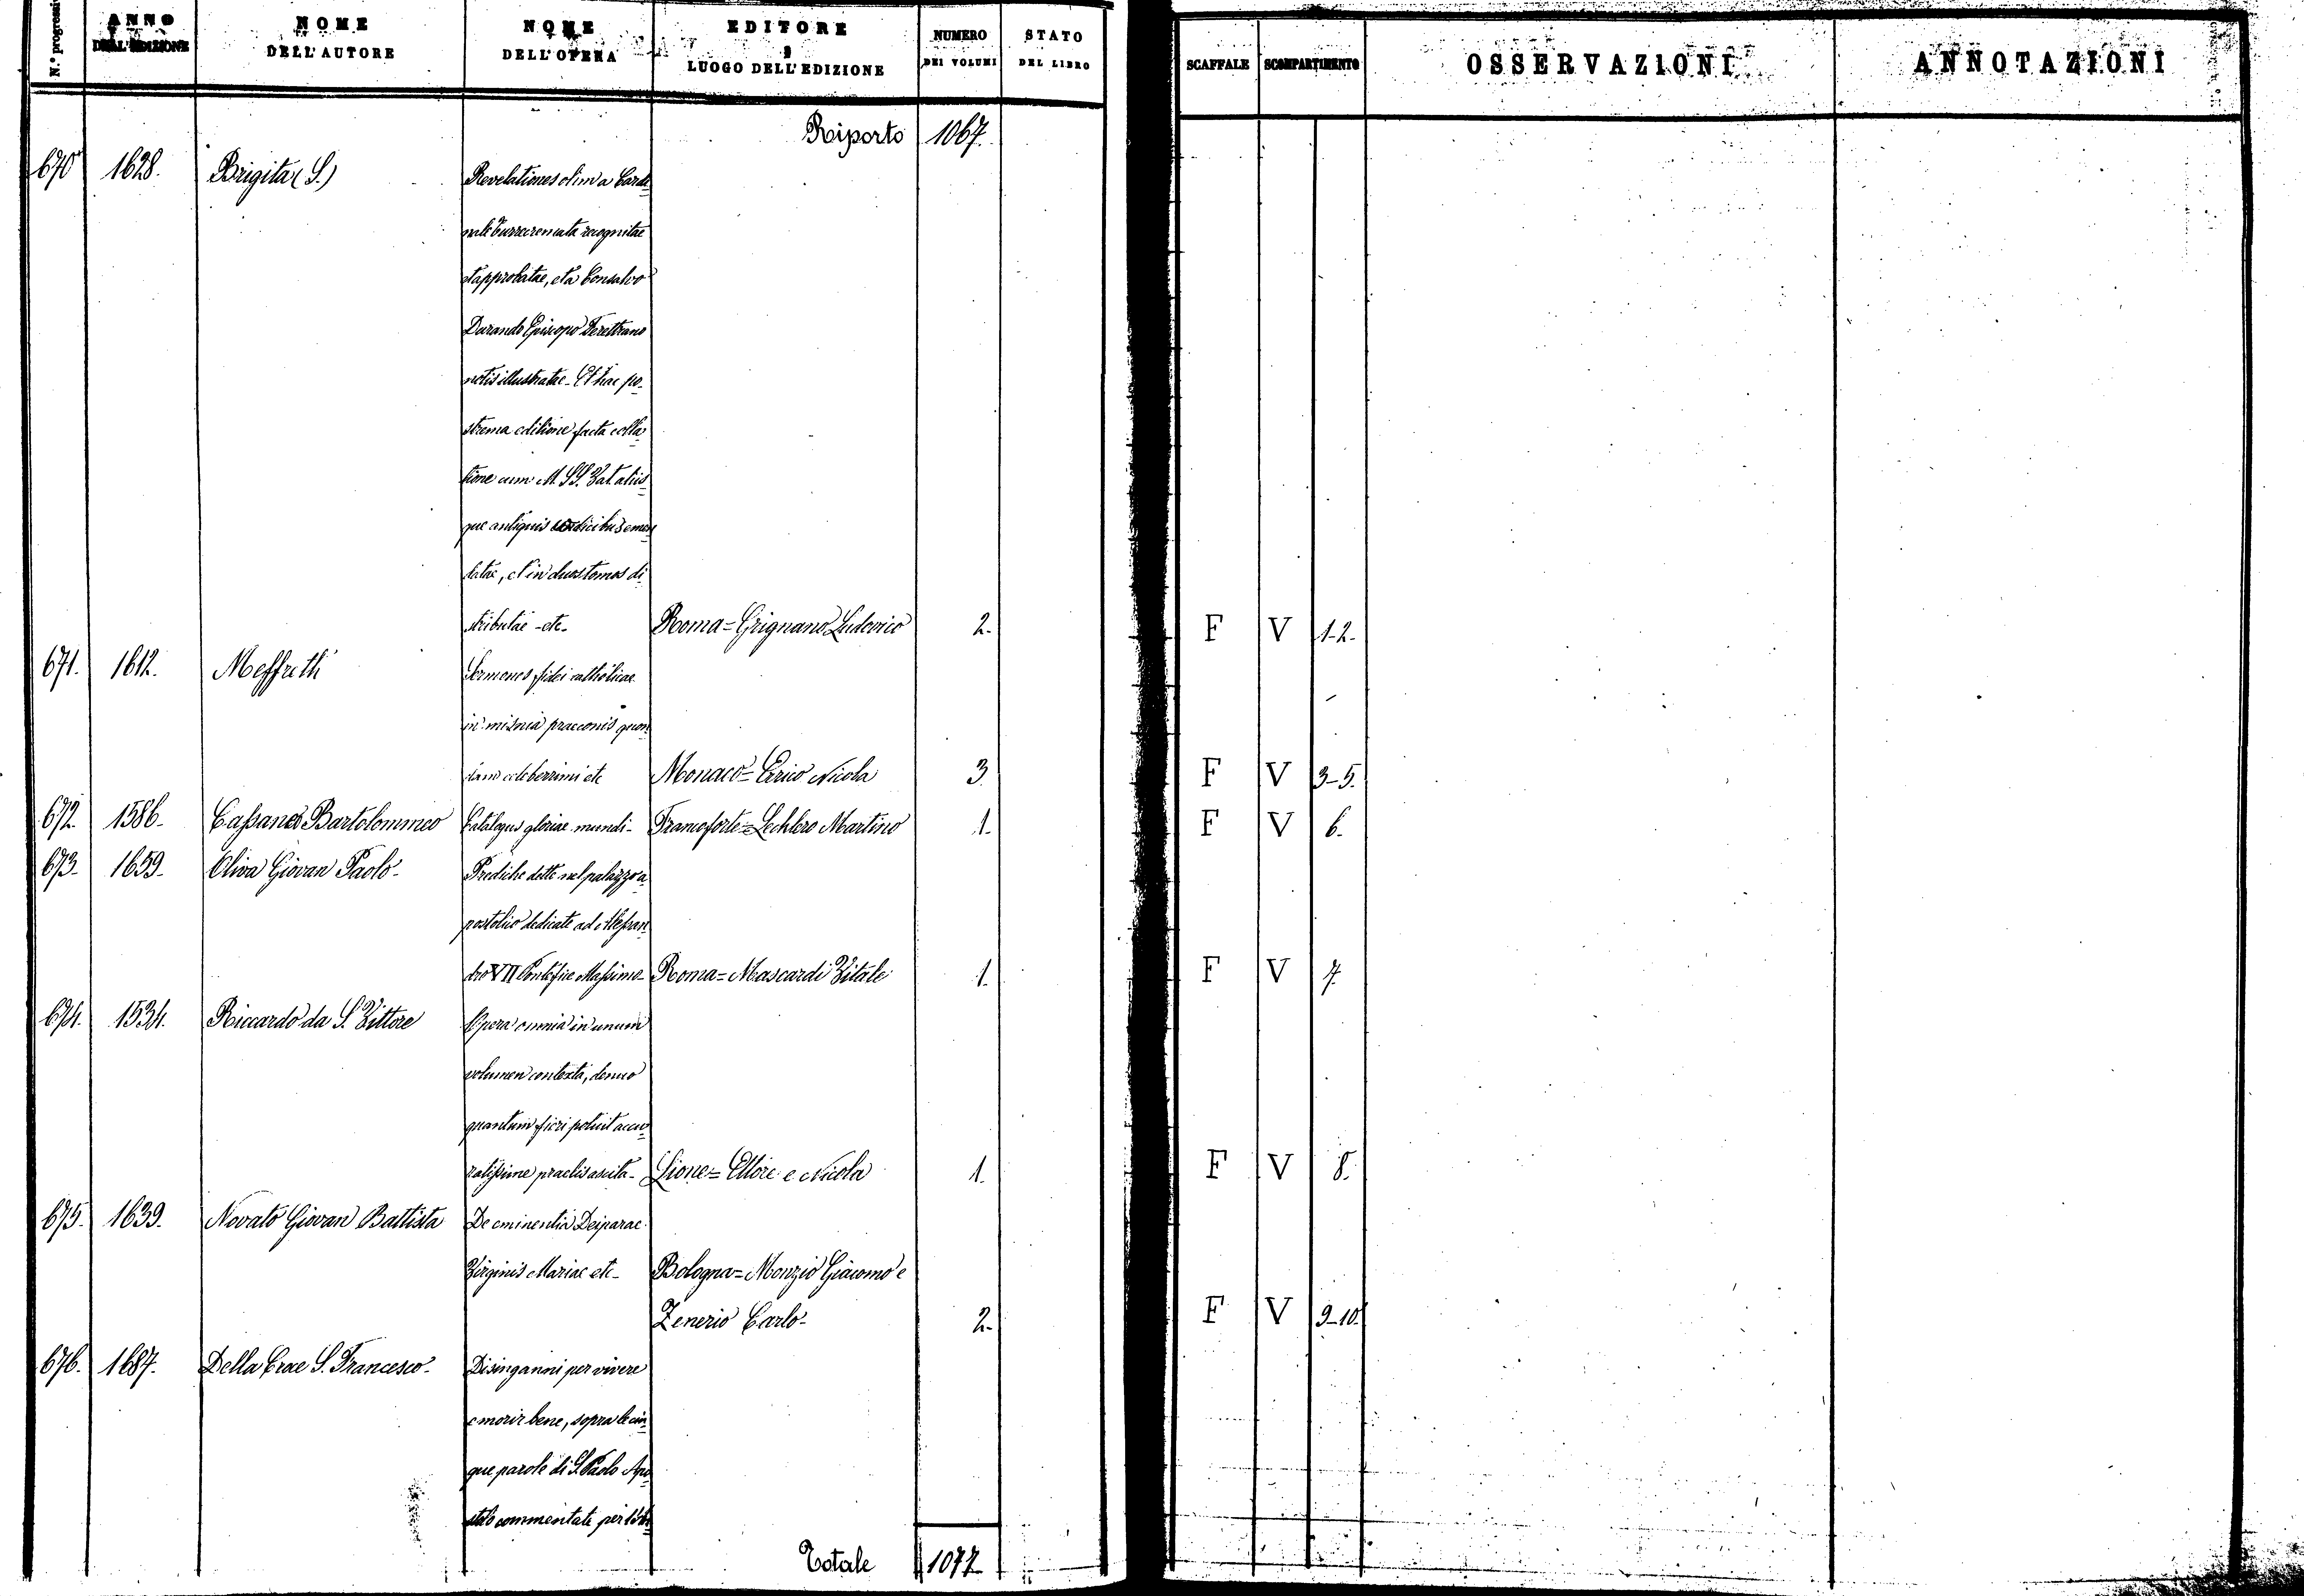 N.° progressi
ANNO DELL'EDIZIONE
NOME DELL'AUTORE
NOME DELL'OPERA
EDITORE e LUOGO DELL'EDIZIONE
NUMERO DEI VOLUMI
STATO DEL LIBRO
SCAFFALE
SCOMPARTIMENTO
OSSERVAZIONI
ANNOTAZIONI
Riporto 1067.
670 1628. Brigita (S.) Revelationes olim a Cardi-
nale Turrecremata recognitae
et approbatae, et a Consalvo
Durando Episcopo Feretrano
notis illustratae - Et hac po-
strema editione facta colla-
tione cum M. SS. Vat. aliis-
que antiquis codicibus emen-
datae, et in duos tomos di-
stributae - etc - Roma = Grignano Ludovico 2. F V 1-2.
671. 1612. Meffreth Sermones fidei catholicae
in misnia praeconis quon-
dam celeberrimi etc Monaco = Errico Nicola 3 F V 3-5.
672. 1586. Cassaneo Bartolommeo Catalogus gloriae mundi - Francoforte = Lechlero Martino 1. F V 6.
673. 1659. Oliva Giovan Paolo - Prediche dette nel palazzo a-
postolico dedicate ad Alessan-
dro VII Pontefice Massimo - Roma = Mascardi Vitale 1. F V 7.
674. 1534. Riccardo da S. Vittore Opera omnia in unum
volumen contexta, denuo
quantum fieri potuit accu-
ratissime praelis ascita - Lione = Ettore e Nicola 1. F V 8.
675. 1639. Novato Giovan Battista De eminentia Deiparae
Virginis Mariae etc - Bologna = Monzio Giacomo e
Zenerio Carlo - 2. F V 9-10.
676. 1687. Della Croce S. Francesco - Disinganni per vivere
e morir bene, sopra le cin-
que parole di S. Paolo Apo-
stolo commentate per
Totale 1077